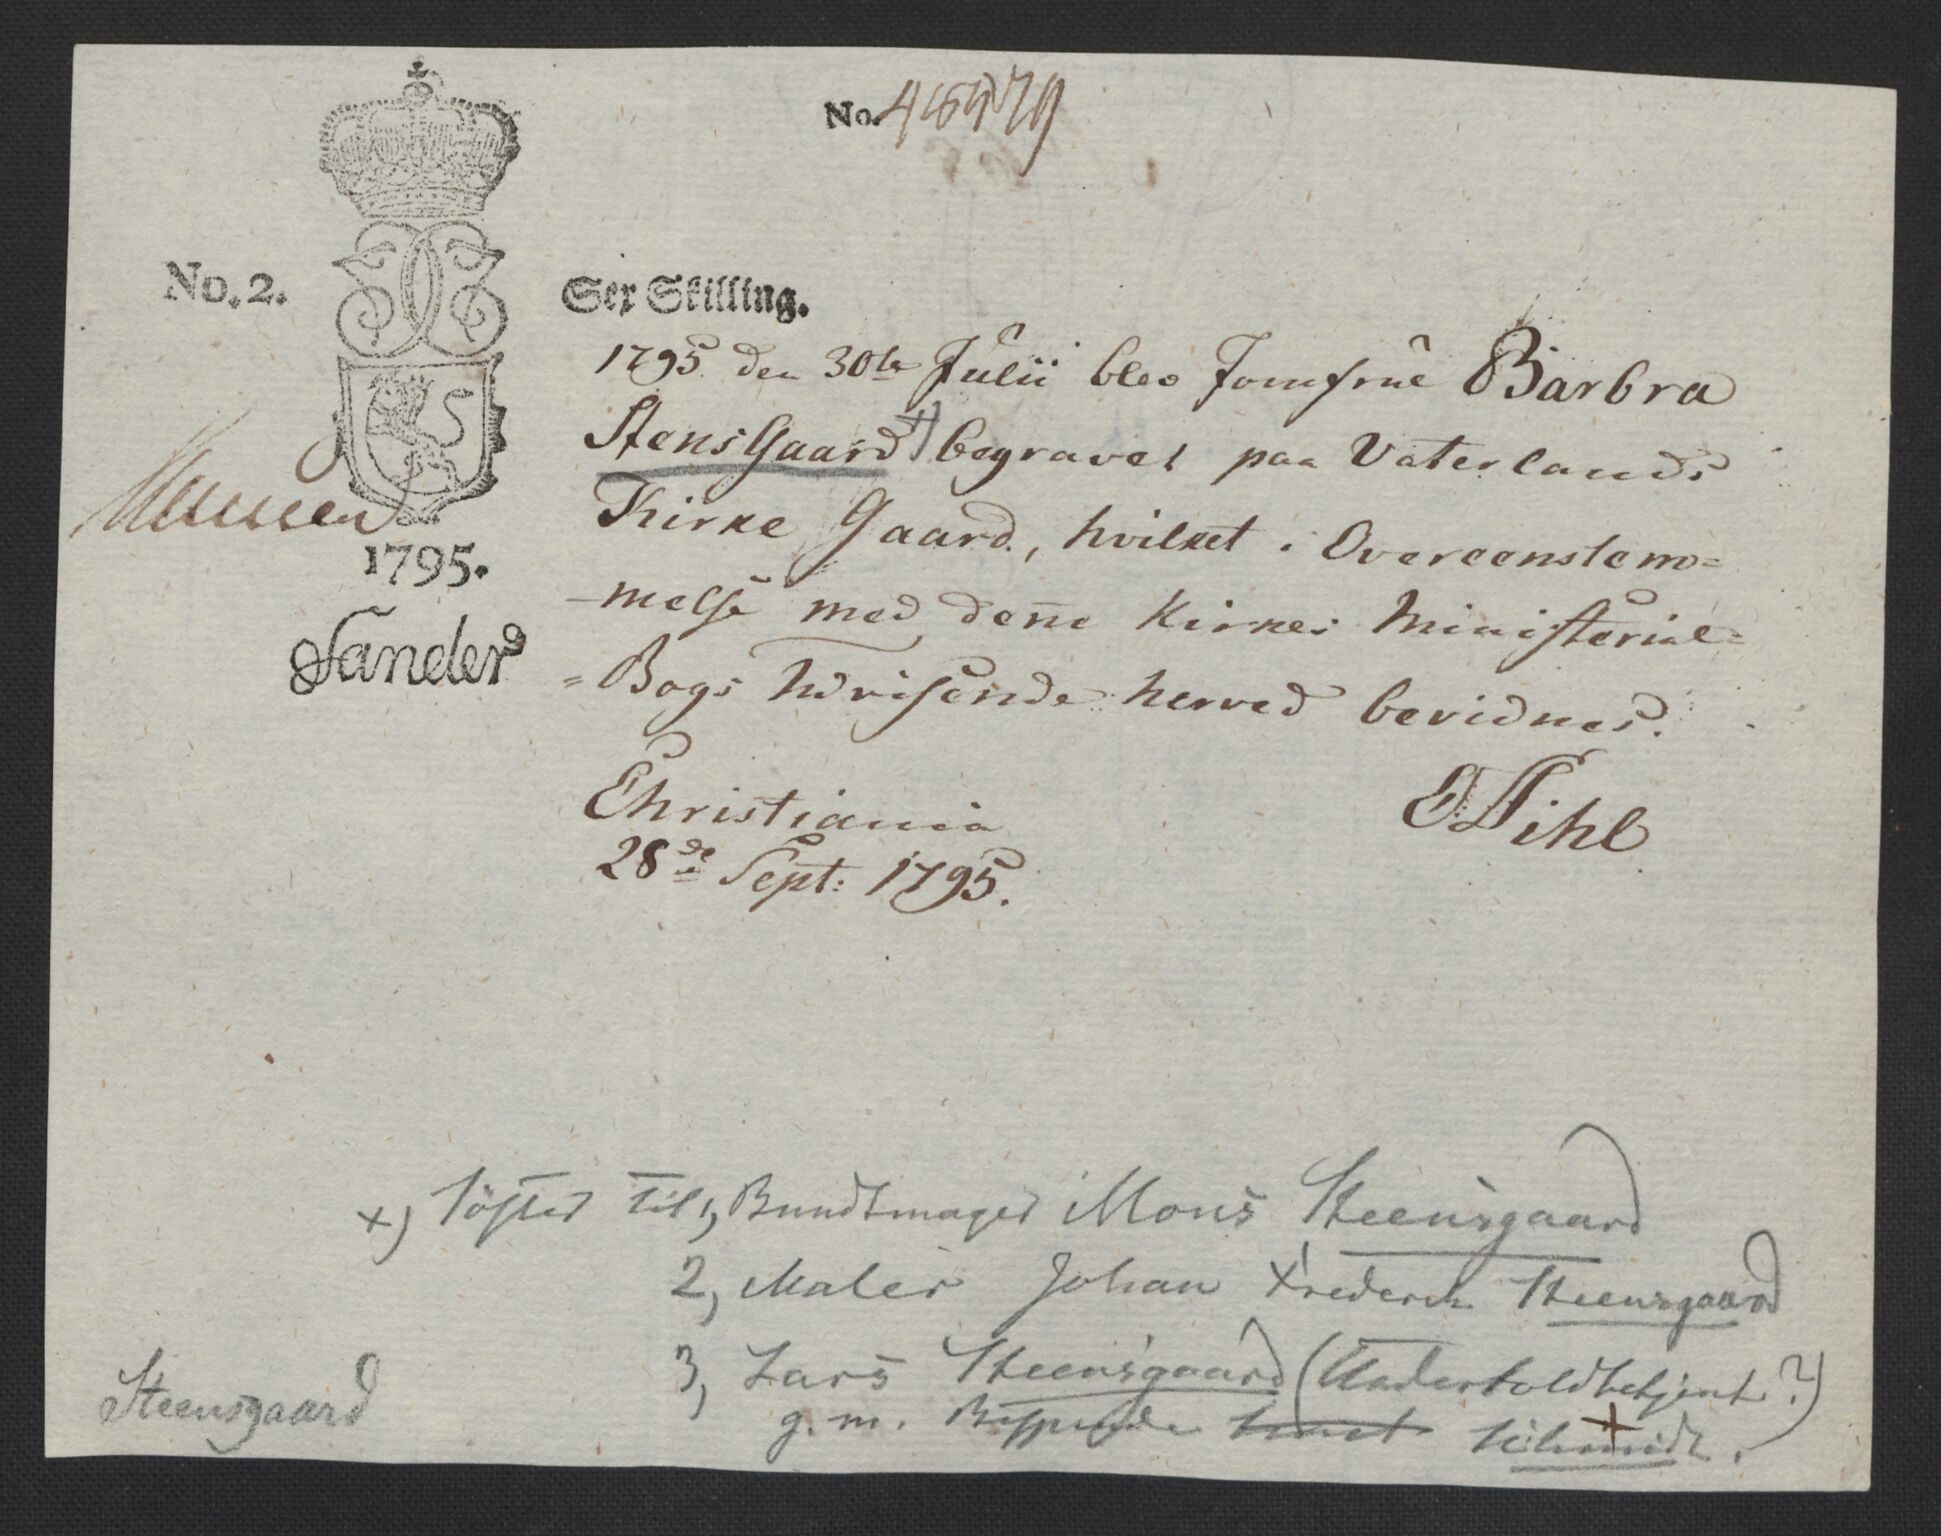 No.
No. 2.
Sex Skilling.
1795 den 30te Julii blev Jomfrue Barbra
StensGaard x) begravet paa Vaterlands
Kirke Gaard, hvilket i Overeenstem=
-melse med denne Kirkes Ministerial=
=Bogs Udvisende herved bevidnes.
Christiania
28de Sept: 1795.
Pihl
1795.
Sander
x) Söster til 1, Bundtmager Mons Steensgaard
2, Maler Johan Frederich Steensgaard
3, Lars Steensgaard (Undertoldbetjent?)
g. m. Schmidt.
Steensgaard